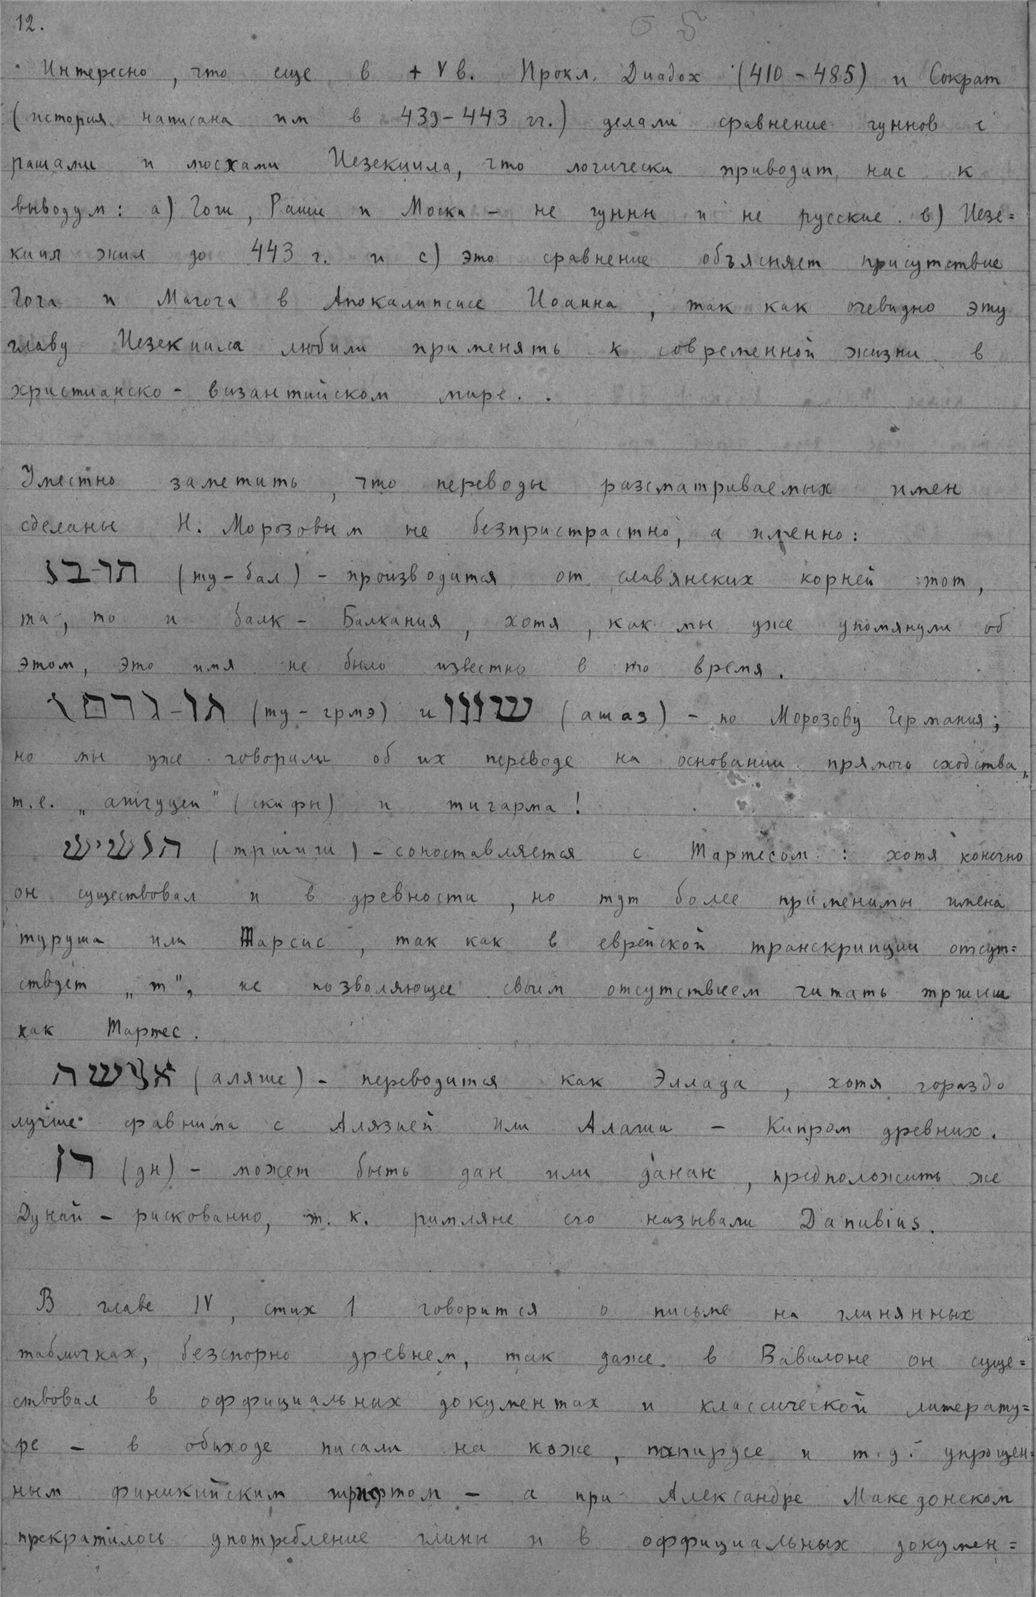 12.
Интересно, что еще в + V в. Прокл. Диадох (410-485) и Сократ
(история написана им в 439-443 гг.) делали сравнение гуннов с
рашами и мосхами Иезекиила, что логически приводит нас к
выводум: а) Гоги, Раши и Моски - не гунны и не русские. в) Иезе=
киил жил до 443 г. и с) это сравнение объясняет присутствие
Гога и Магога в Апокалипсисе Иоанна, так как очевидно эту
главу Иезекиила любили применять к современной жизни в
христианско - византийском мире.
Уместно заметить, что переводы разсматриваемых имен
сделаны Н. Морозовым не безпристрастно, а именно:
(ту-бал) - производится от славянских корней тот,
та, то и балк - Балкания, хотя, как мы уже упомянули об
этом, это имя не было известно в то время.
(ту-грмэ) и (ашаз) - по Морозову Германия;
но мы уже говорили об их переводе на основании прямого сходства,
т.е. „ашгуцеи" (скифы) и тигарма!
(тршиш) - сопоставляется с Тартесом: хотя конечно
он существовал и в древности, но тут более применимы имена
туруша или Тарсис, так как в еврейской транскрипции отсут=
ствует „т", не позволяющее своим отсутствием читать тршиш
как Тартес.
(аляше) - переводится как Эллада, хотя гораздо
лучше сравнима с Алязией или Алаши - Кипром древних.
(дн) - может быть дан или данак, предположить же
Дунай - рискованно, т. к. римляне его называли Danubius.
В главе IV, стих 1 говорится о письме на глинянных
табличках, безспорно древнем, так даже в Вавилоне он суще=
ствовал в оффициальных документах и классической литерату=
ре - в обиходе писали на коже, папирусе и т.д. упрощен=
ным финикийским шрифтом - а при Александре Македонском
прекратилось употребление глины и в оффициальных докумен=